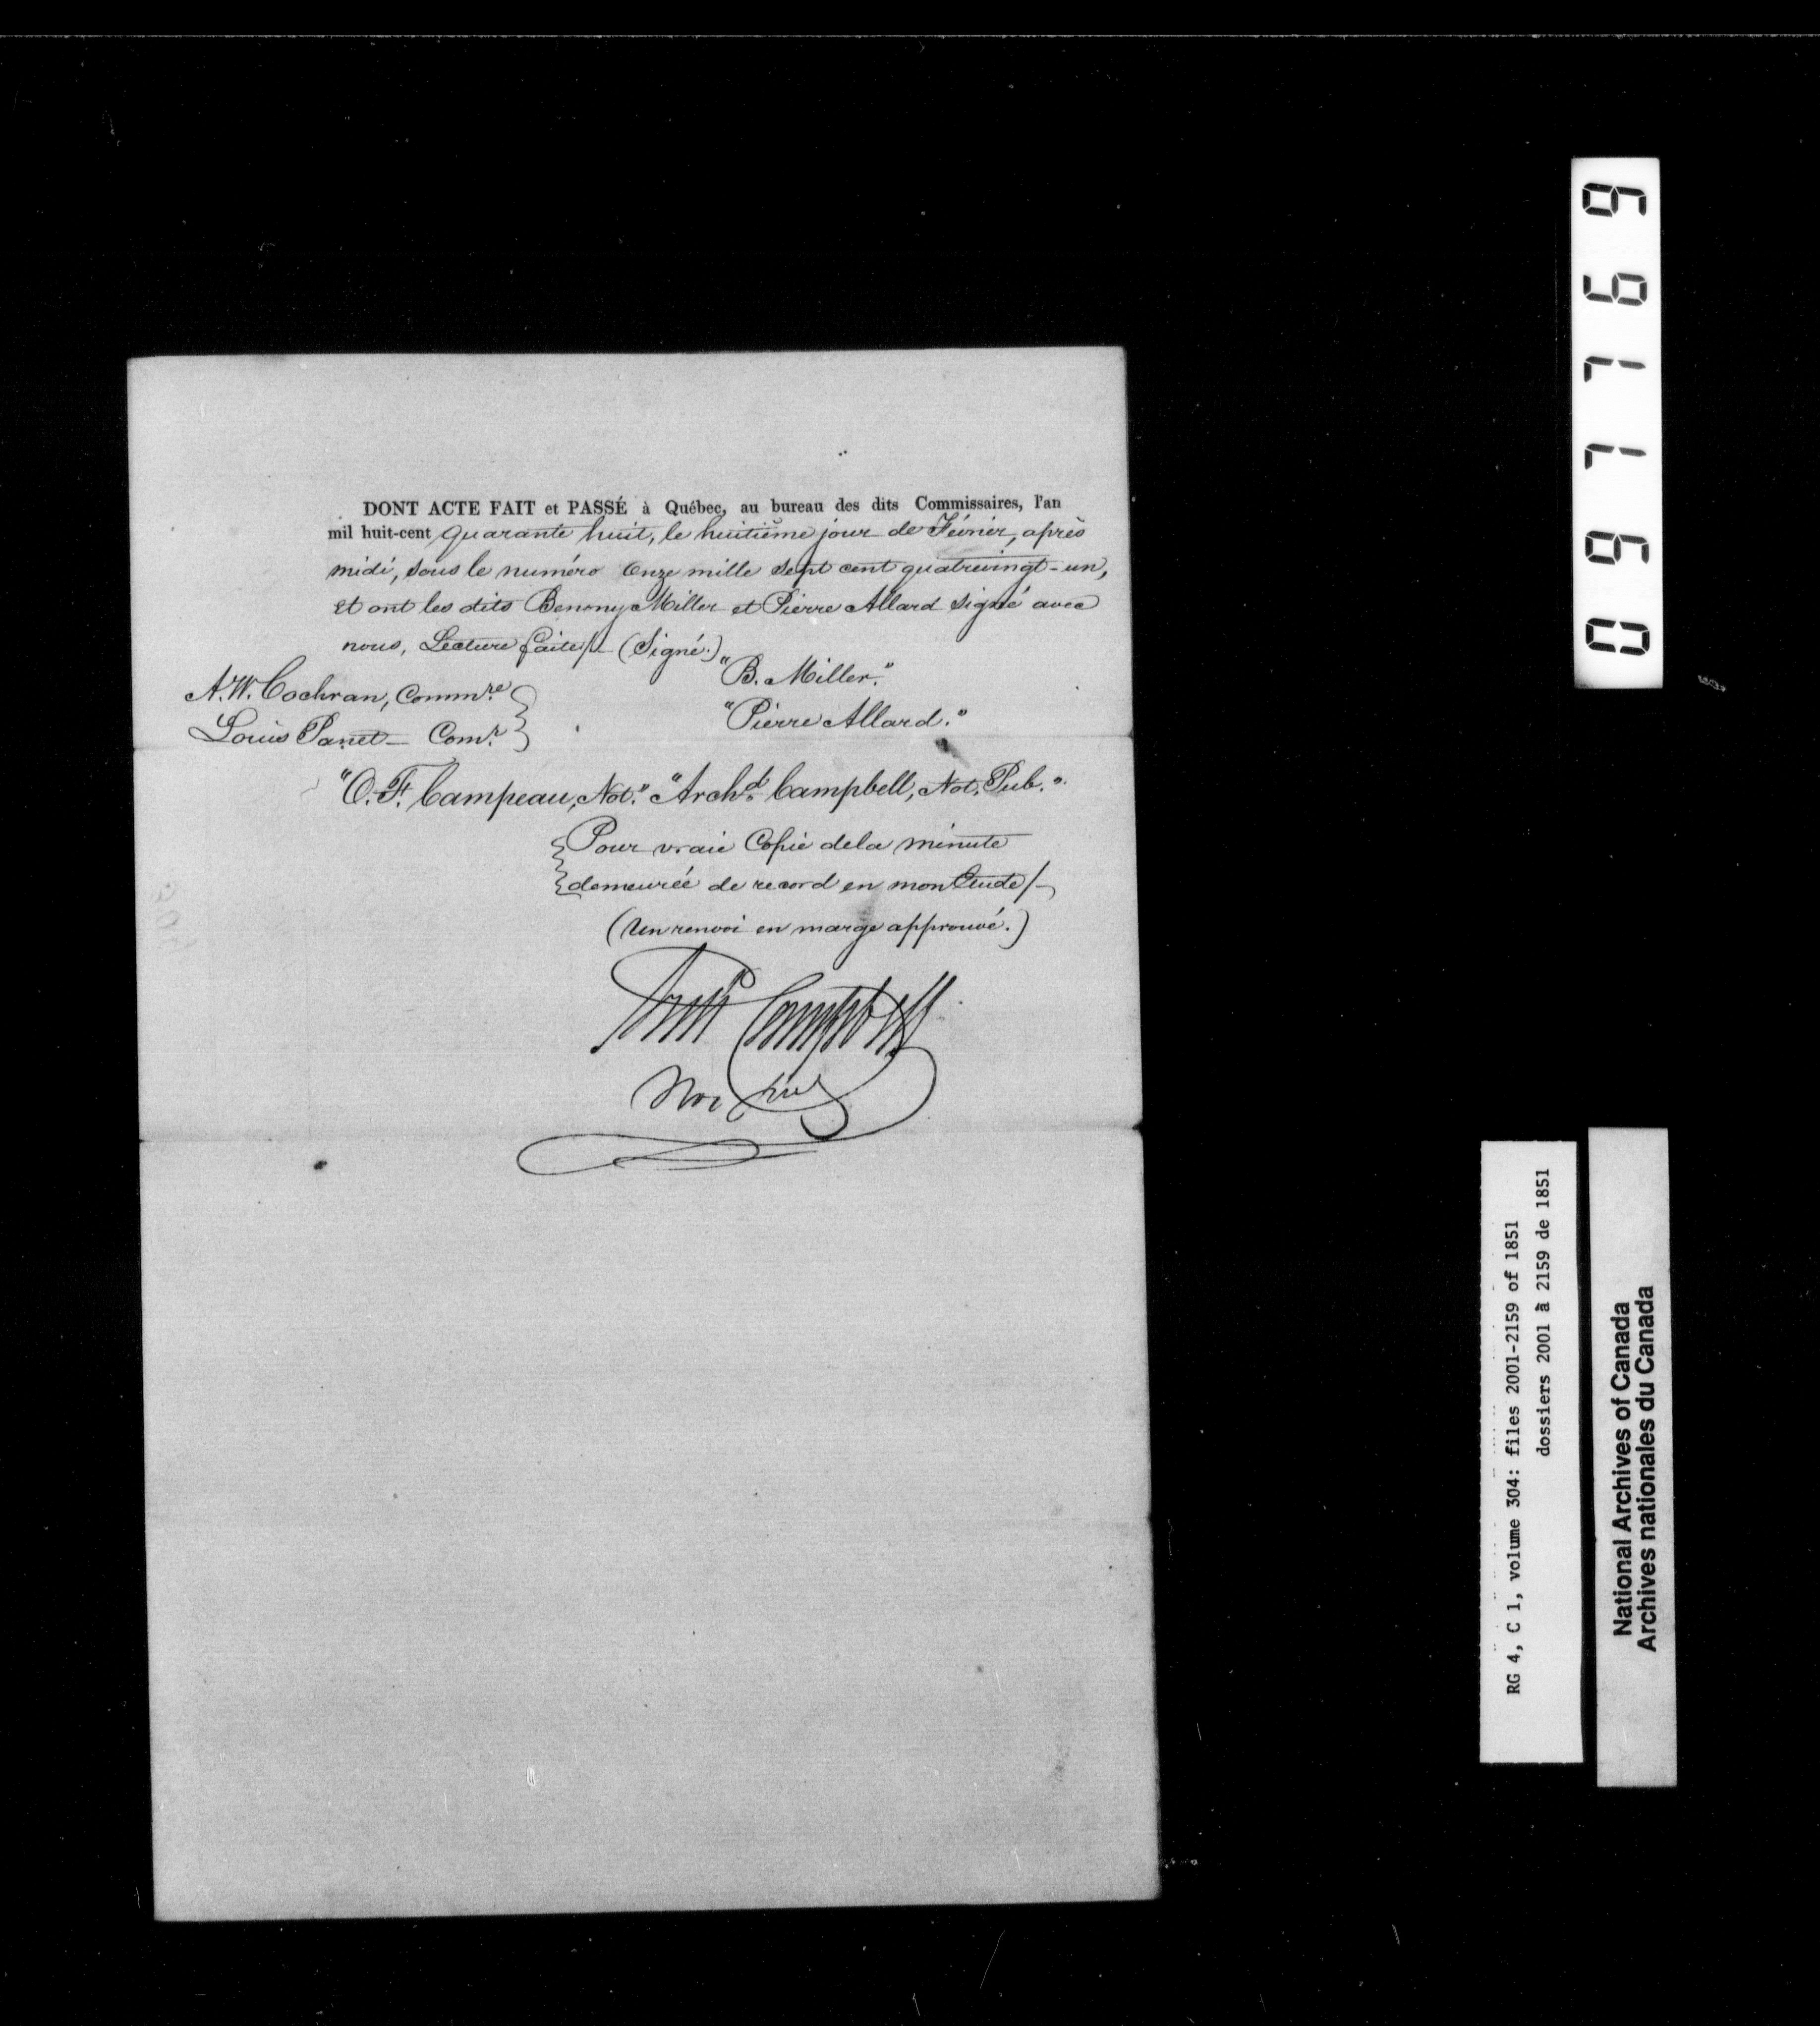 DONT ACTE FAIT et PASSÉ à Québec, au bureau des dits Commissaires, l'an
mil huit-cent quarante huit, le huitième jour de Févriér, après
midi, sous le numéro Onze mille sept cent quatrevingt-un,
et ont les dits Benony Miller et Pierre Allard signé avec
nous, Lecture faite/- (Signé.)
"B. Miller."
A.W. Cochran, Commre
"Pierre Allard."
Louis Panet - Comr.
"O.F. Campeau, Not." "Archd. Campbell, Not. Pub."
Pour vraie Copie de la minute
demeurée de record en mon Etude/-
(Un renvoi en marge approuvé.)
Archd Campbell
Not Pub
097769
RG 4, C 1, volume 304: files 2001-2159 of 1851
dossiers 2001 à 2159 de 1851
National Archives of Canada
Archives nationales du Canada